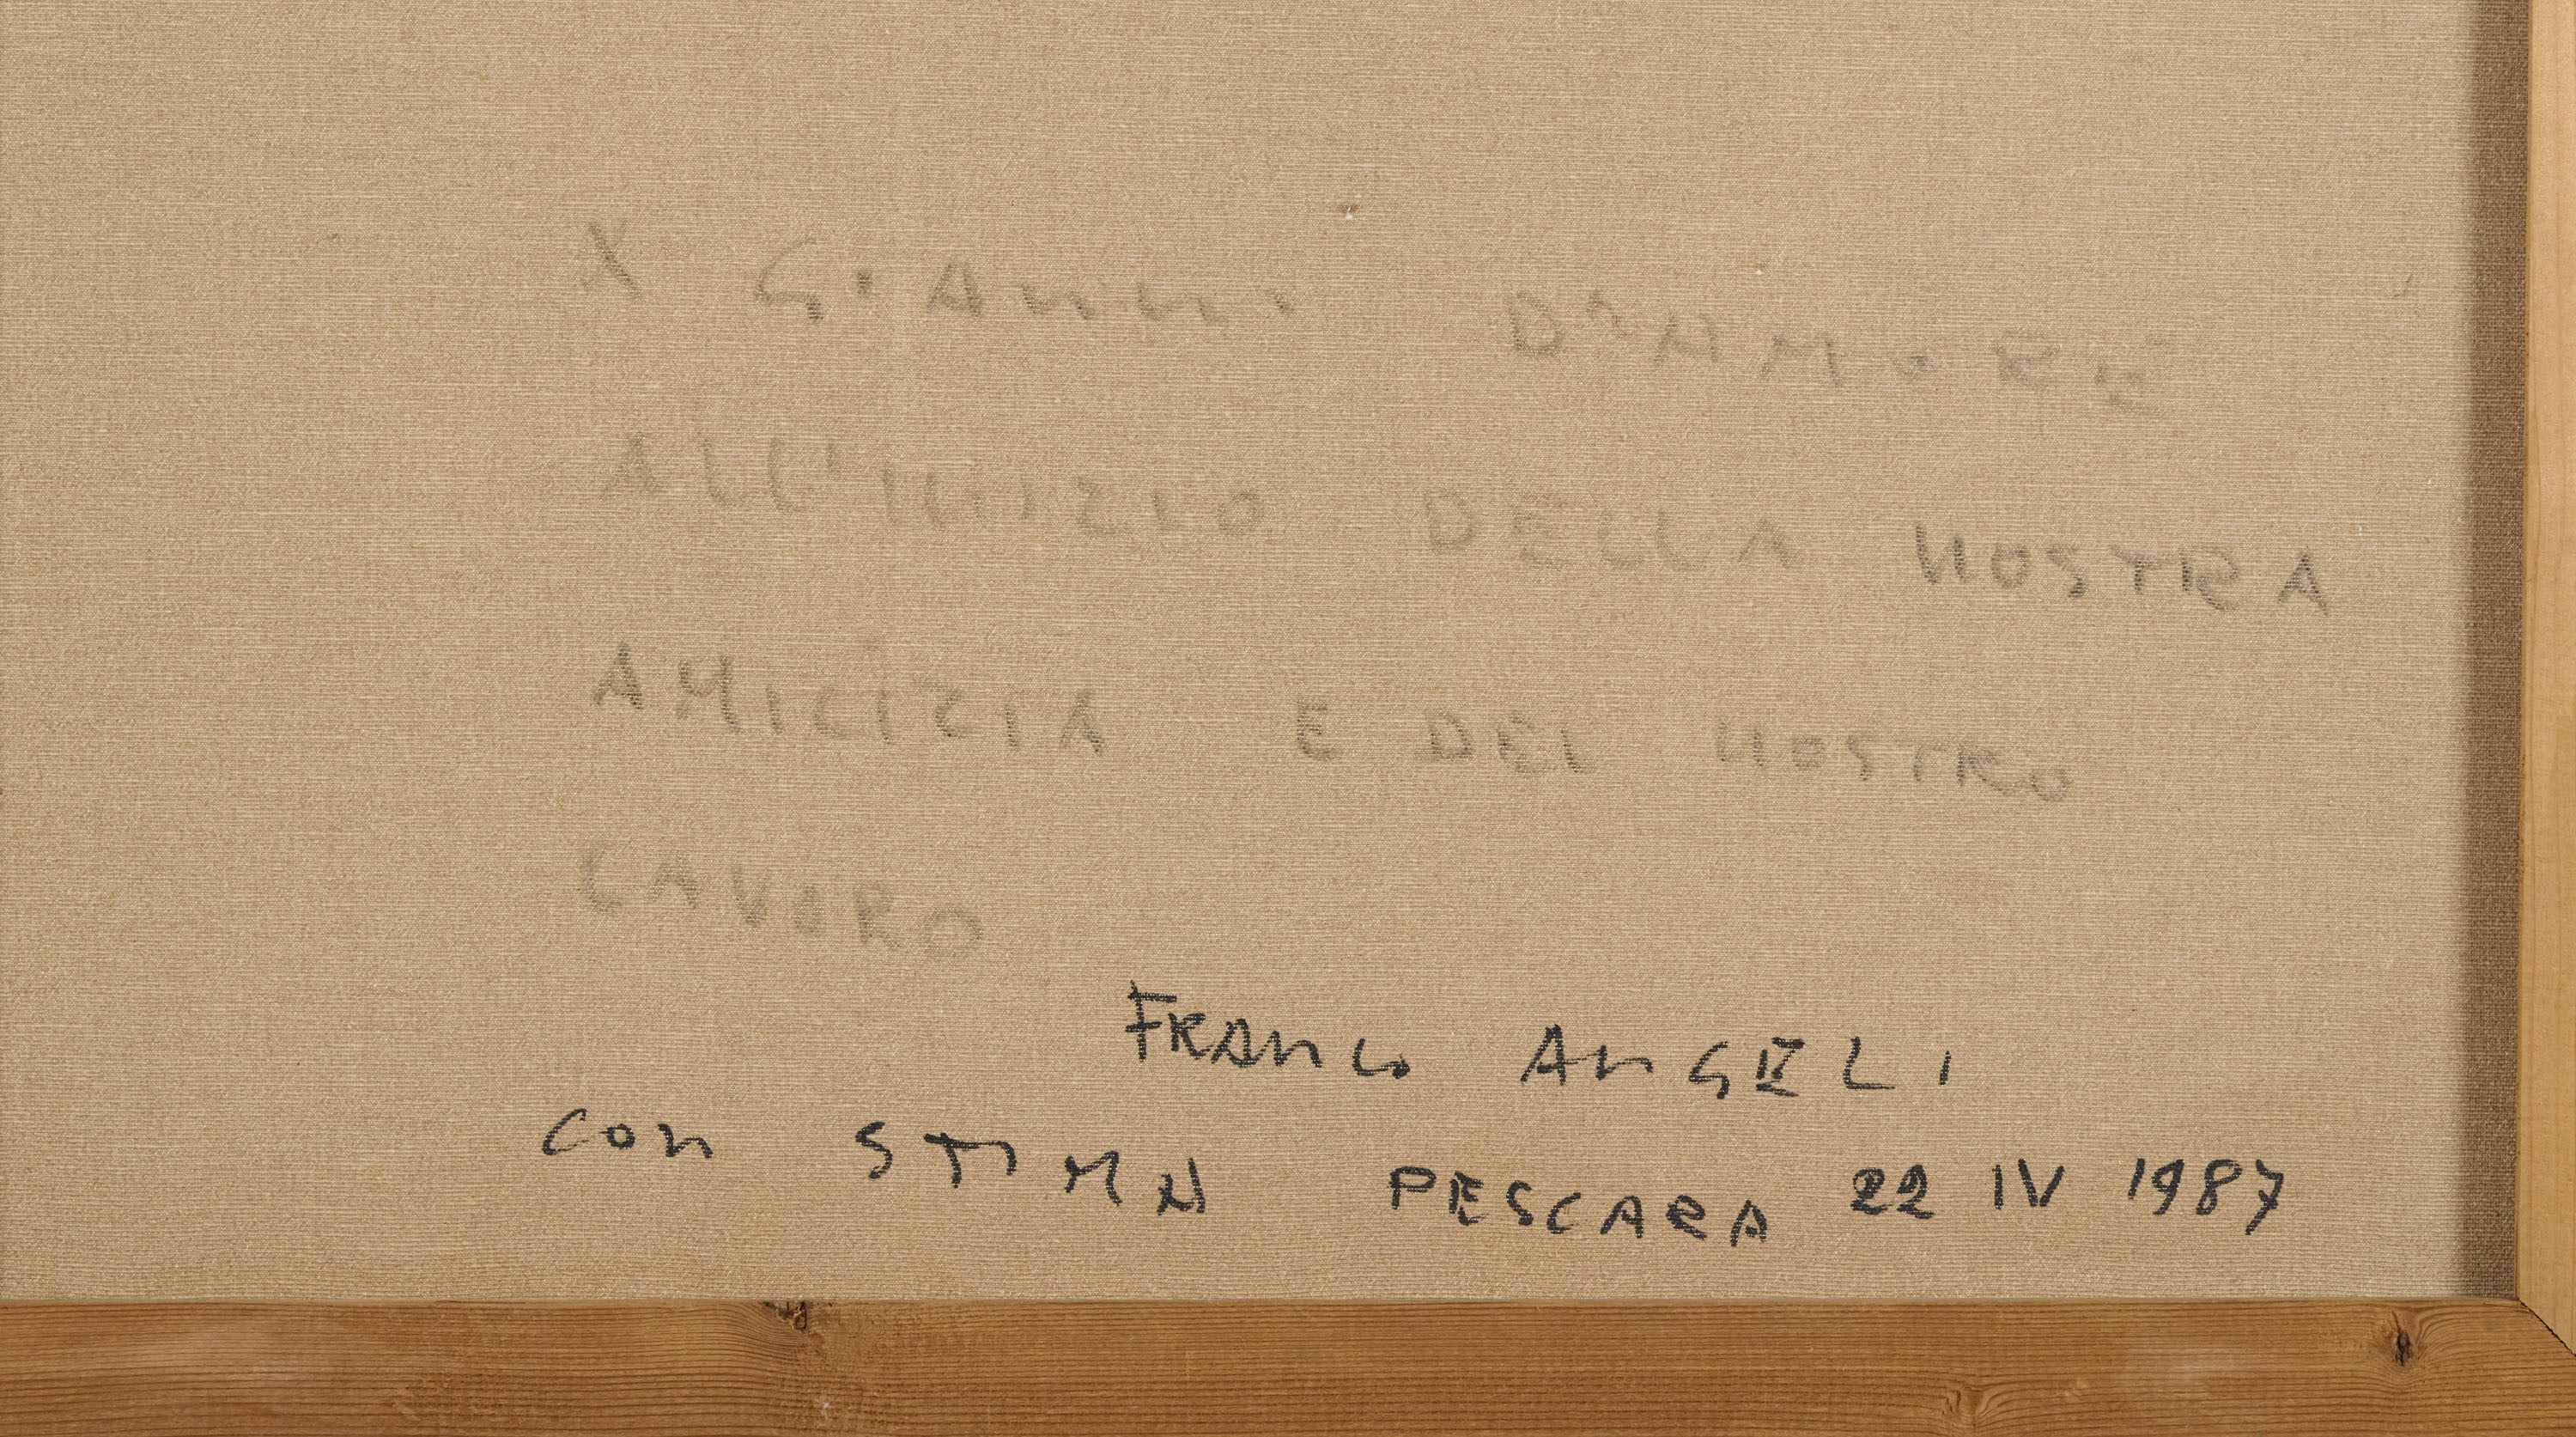 X GiAnni D'AMORE
ALL'INIZIO DELLA NOSTRA
AMICIZIA E DEL NOSTRO
LAVORO
FRANCO ANGELI
con STIMA PESCARA 22 IV 1987